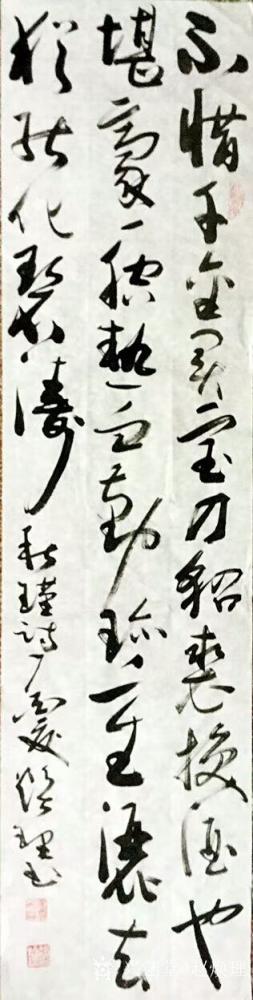 不惜千金買宝刀貂裘換酒也
堪豪一腔熱血勤珍重灑去
猶能化碧濤 秋瑾詩 煥理书